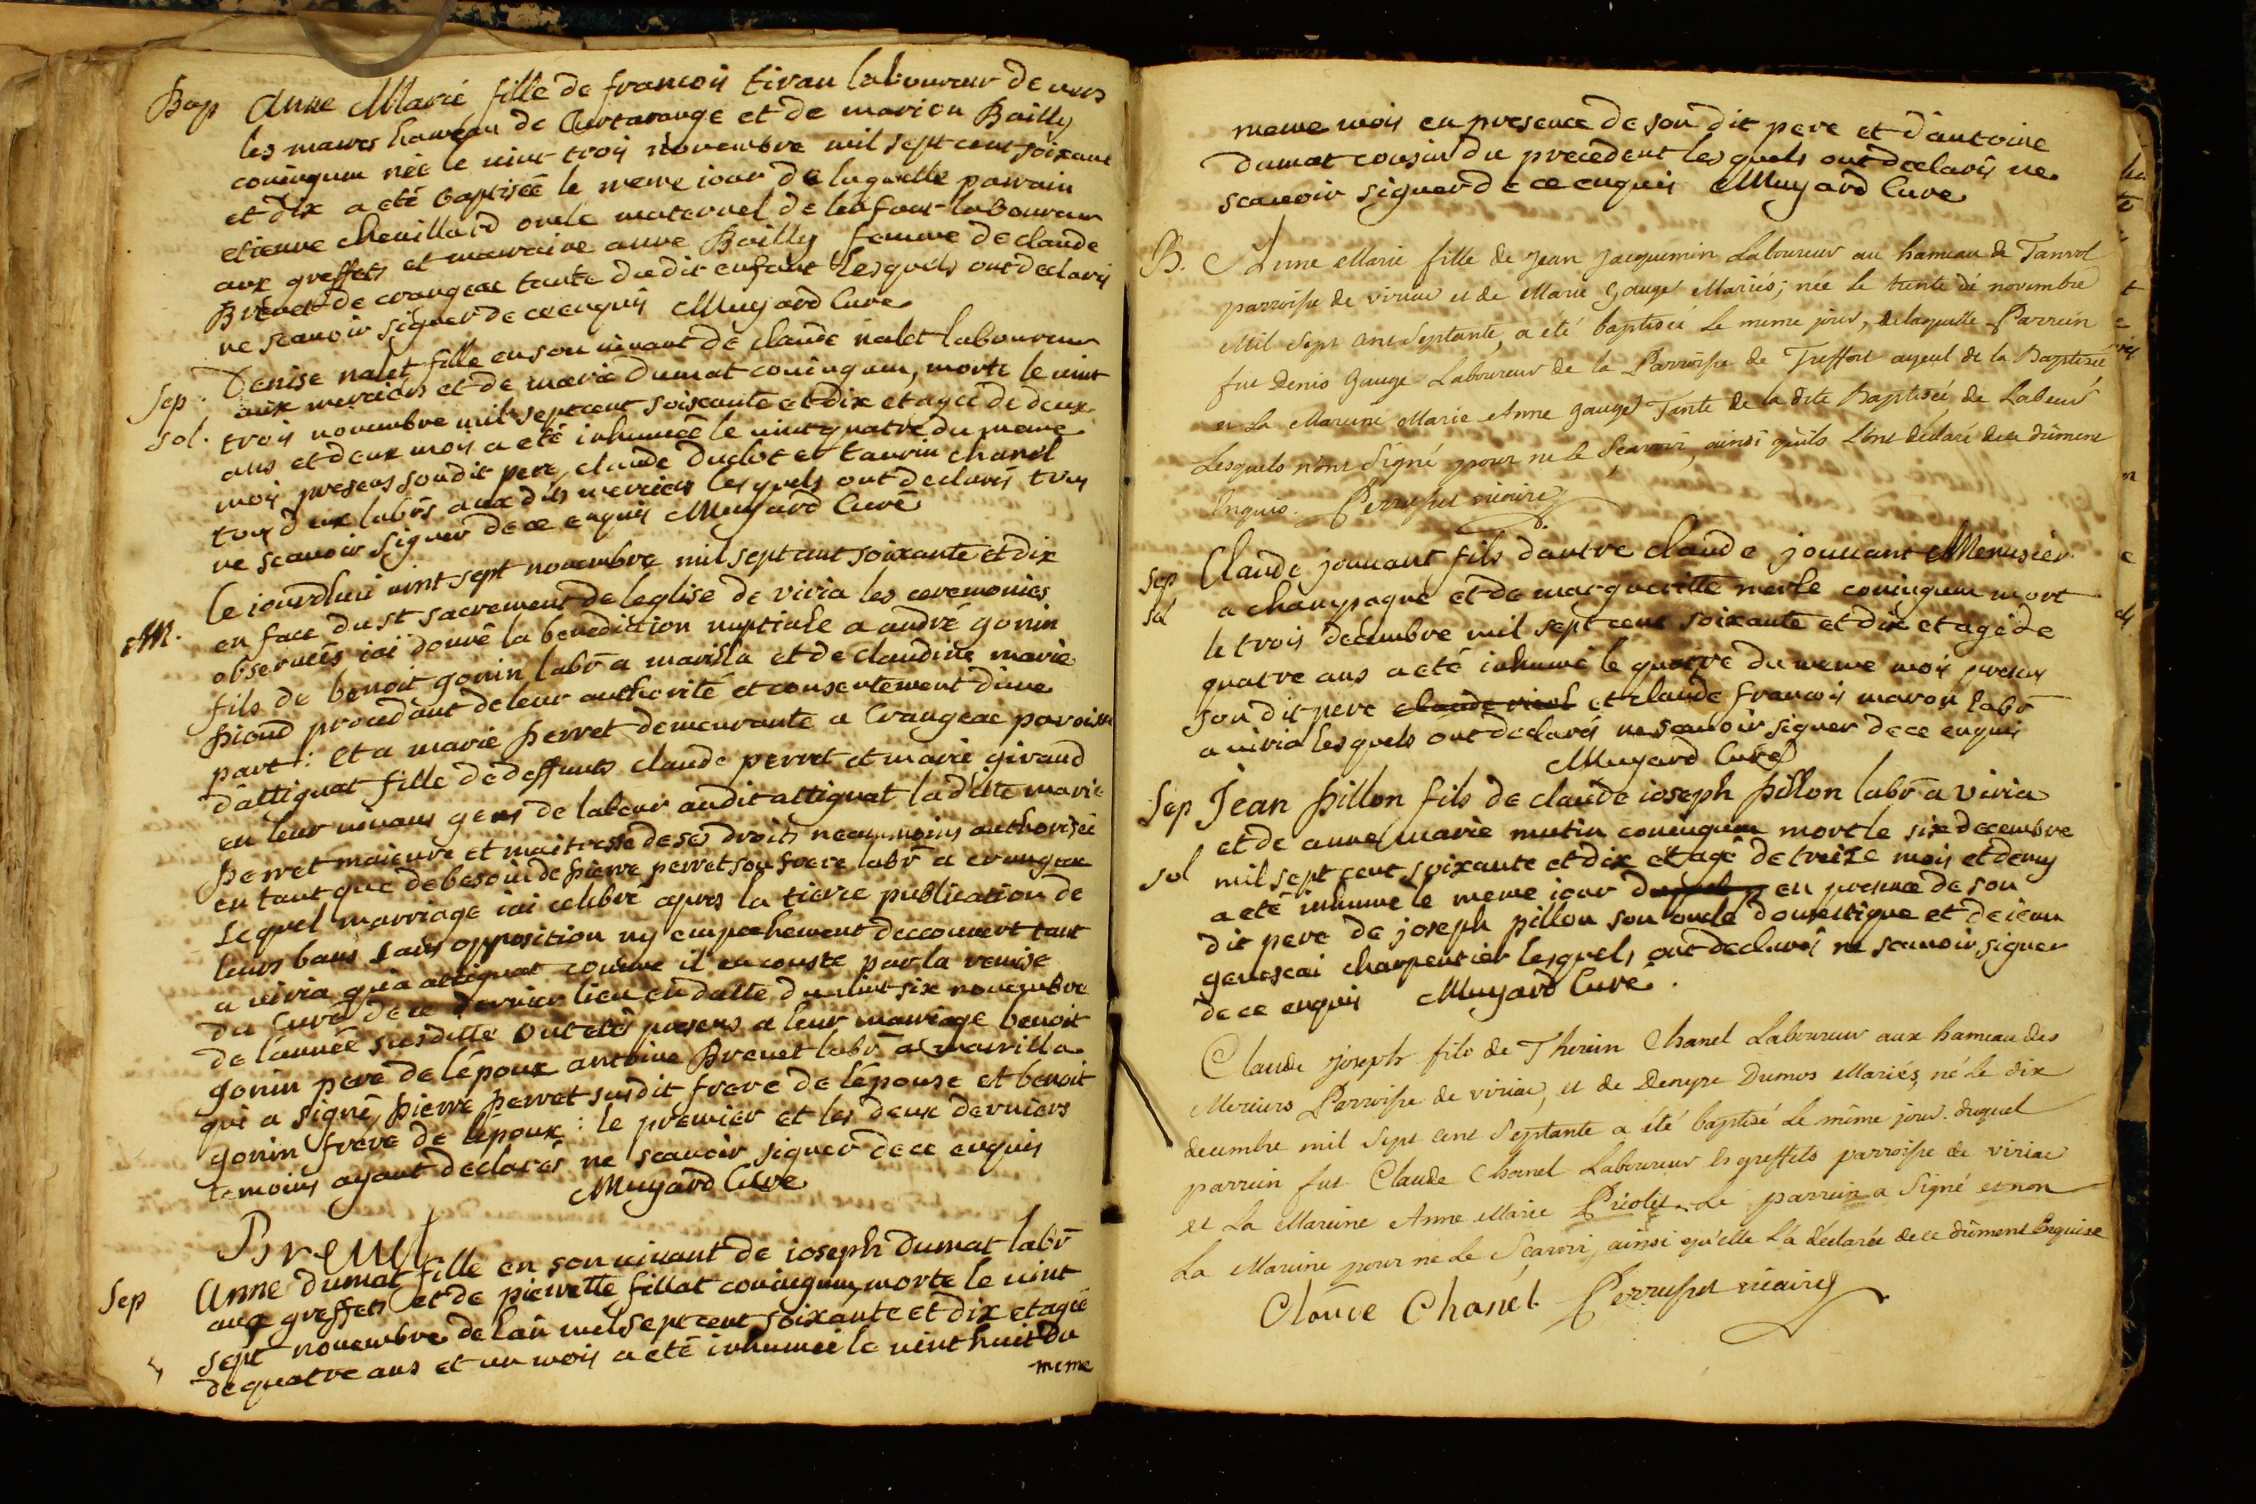 Bap Anne Marie fille de francois tiran laboureur de vers
les mares hameau de Curtarange et de marion Bailly
coniugum née le vint trois novembre mil sept cent soixante
et dix a eté baptisée le meme iour de laquelle parrain
etienne chevillard oncle maternel de lenfant laboureur
aux greffets et marraine anne Bailly femme de claude
Brevet de crangeac tante du dit enfant lesquels ont declarés
ne scavoir signer de ce enquis Muyard Cure
Sep. Denise nalet fille en son vivant de claude nalet laboureur
aux merciers et de marie Dumat coniugum, morte le vint
Sol. trois novembre mil sept cent soixante et dix et agée de deux
ans et deux mois a eté inhumée le vint quatre du meme
mois presens son dit pere, claude Duclot et taurin chanel
tous deux labrs aux dits merciers lesquels ont declarés tous
ne scavoir signer de ce enquis Muyard Curé
le iourdhui vint sept novembre mil sept cent soixante et dix
M. en face du st sacrement de leglise de viria les ceremonies
observées iai donné la benediction nuptiale a andré gonin
fils de benoit gonin labr a marilla et de claudine marie
piond procedant de leur authorité et consentement dune
part : Et a marie perret demeurante a Crangeac paroisse
dattignat fille de deffunts claude perret et marie giraud
en leur vivans gens de labeur audit attignat la ditte marie
perret maieure et maitresse de ses droits neanmoins authorisée
en tant que de besoin de pierre perret son frere labr a crangeac
Lequel marriage iai celibré apres la tierce publication de
leurs bans sans opposition ny empechement deccouvert tant
a viria qu'a attignat comme il en conste par la remise
du Curé de ce dernier lieu en datte du vint six novembre
de lannée susditte ont etés presens a leur marriage benoit
gonin pere de lépoux antoine Brevet labr a marilla
qui a signé, pierre perret susdit frere de lépouse et benoit
gonin frere de lepoux : le premier et les deux derniers
temoins ayant declarés ne scavoir signer de ce enquis
Muyard Cure
Brevet
Sep Anne dumat fille en son vivant de ioseph Dumat labr
aux greffets et de pierrette fillat coniugum, morte le vint
sept novembre de lan mil sept cent soixante et dix et agée
de quatre ans et un mois a eté inhumée le vint huit du
meme
meme mois en presence de son dit pere et d'antoine
dumat cousin du precedent lesquels ont declarés ne
scavoir signer de ce enquis Muyard Cure
B. Anne Marie fille de Jean Jacquemin Laboureur au hameau de Tanvol
parroisse de viriac et de Marie Gauge Mariés; née le trente de novembre
Mil Sept cent Septante, a été baptisée le meme jour, de laquelle Parrein
fut Denis Gauge Laboureur de la Parroisse de Treffort ayeul de la Baptisée
et la Mareine Marie Anne Gauge Tante de la dite Baptisée de Labeur
Lesquels n'ont Signé pour ne le Scavoir, ainsi qu'ils L'ont déclaré de ce dûment
Enquis. Perruset vicaire
Sep Claude jouuant fils dautre claude jouuant Menusier
Sol a champagne et de margueritte merle coniugum mort
le trois decembre mil sept cent soixante et dix et agé de
quatre ans a eté inhumé le quatre du meme mois presens
son dit pere et claude francois maron labr
a viria lesquels ont declarés ne scavoir signer de ce enquis
Muyard Curé
Sep Jean pillon fils de claude ioseph pillon labr a viria
et de anne marie mutin coniugum mort le six decembre
Sol mil sept cent soixante et dix et agé de treize mois et demy
a eté inhumé le meme iour en presence de son
dit pere de joseph pillon son oncle domestique et de iean
genescai charpentier lesquels ont declarés ne scavoir signer
de ce enquis Muyard Curé.
Claude Joseph fils de Thorein Chanel Laboureur aux hameau des
Merciers Parroisse de viriac, et de Denyse Dumos Mariés, né le dix
decembre mil Sept cent Septante a été baptisé le même jour. duquel
parrein fut Claude Chanel Laboureur Es greffets parroisse de viriac
et La Mareine Anne Marie Picolet. Le parrein a Signé et non
La Mareine pour ne le Scavoir, ainsi qu'elle l'a déclarée de ce dûment Enquise
Claude Chanel Perruset vicaire